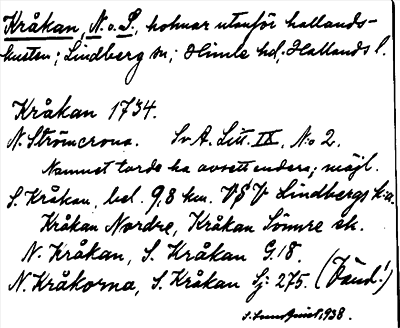 Kråkan, N. o. S., holmar utanför hallands-
kusten; Lindberg sn; Himle hd, Hallands l.
Kråkan 1734.
N. Strömcrona. Sv A. Litt. IX, N:o 2.
Namnet torde ha avsett endera; möjl.
S. Kråkan, bel. 9,8 km. V§V Lindbergs k:a.
Kråkan Nordre, Kråkan Sömre sk.
N. Kråkan, S. Kråkan G.18.
N. Kråkorna, S. Kråkan Sj: 275. (Vänd!)
1938.